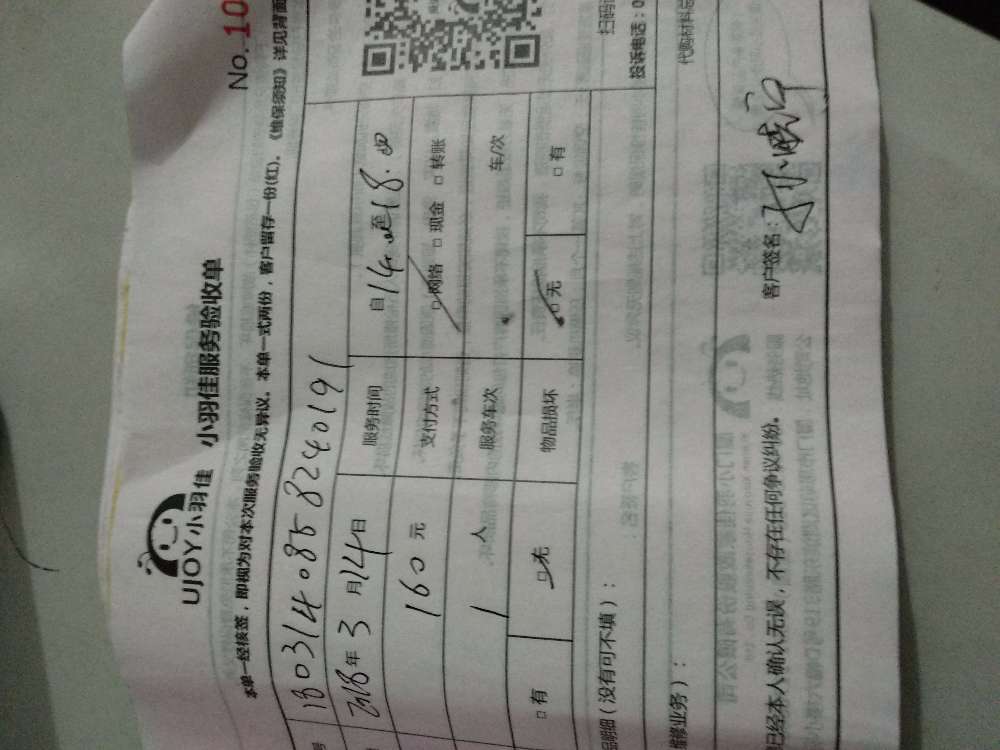 UJOY小羽佳 小羽佳服务验收单
No.10
本单一经核签，即视为对本次服务验收无异议。本单一式两份，客户留存一份(红)。《维保须知》详见背面
1803140858240191
2018年3月14日 服务时间 自14.00至18.00
160元 支付方式 □网络 □现金 □转账
1人 服务车次 车/次
□有 □无 物品损坏 □无 □有
品明细（没有可不填）：
扫码
投诉电话：0
维修业务）：
代购材料
已经本人确认无误，不存在任何争议纠纷。 客户签名：